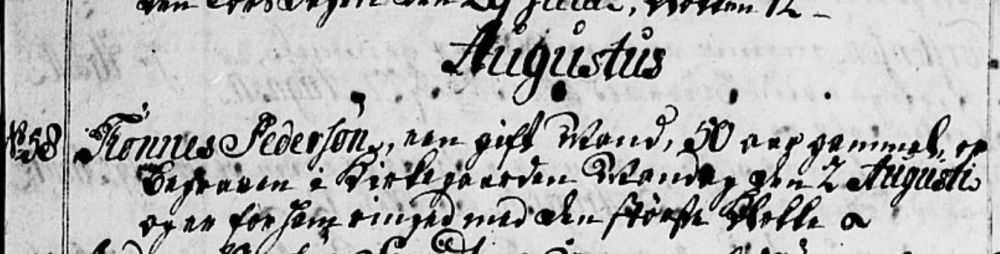 Augustus
No 58 Rönnes Pedersön, een gift Mand, 50 aar gammel, er
begraven i Kirkegaarden Mandag den 2 Augusti
og er for ham ringed med den störste Klokke a